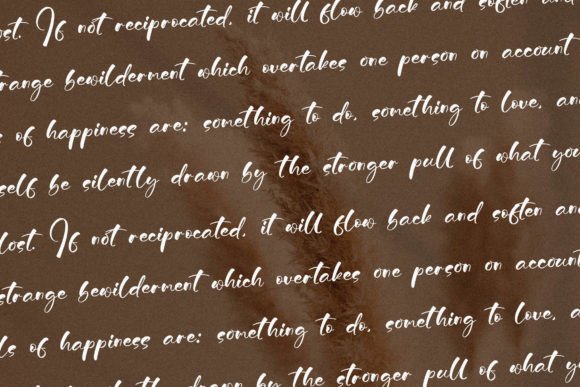 lost. If not reciprocated, it will flow back and soften and
strange bewilderment which overtakes one person on account
s of happiness are: something to do, something to love, an
self be silently drawn by the stronger pull of what you
lost. If not reciprocated, it will flow back and soften and
strange bewilderment which overtakes one person on account
ls of happiness are: something to do, something to love, a
silently drawn by the stronger pull of what yo